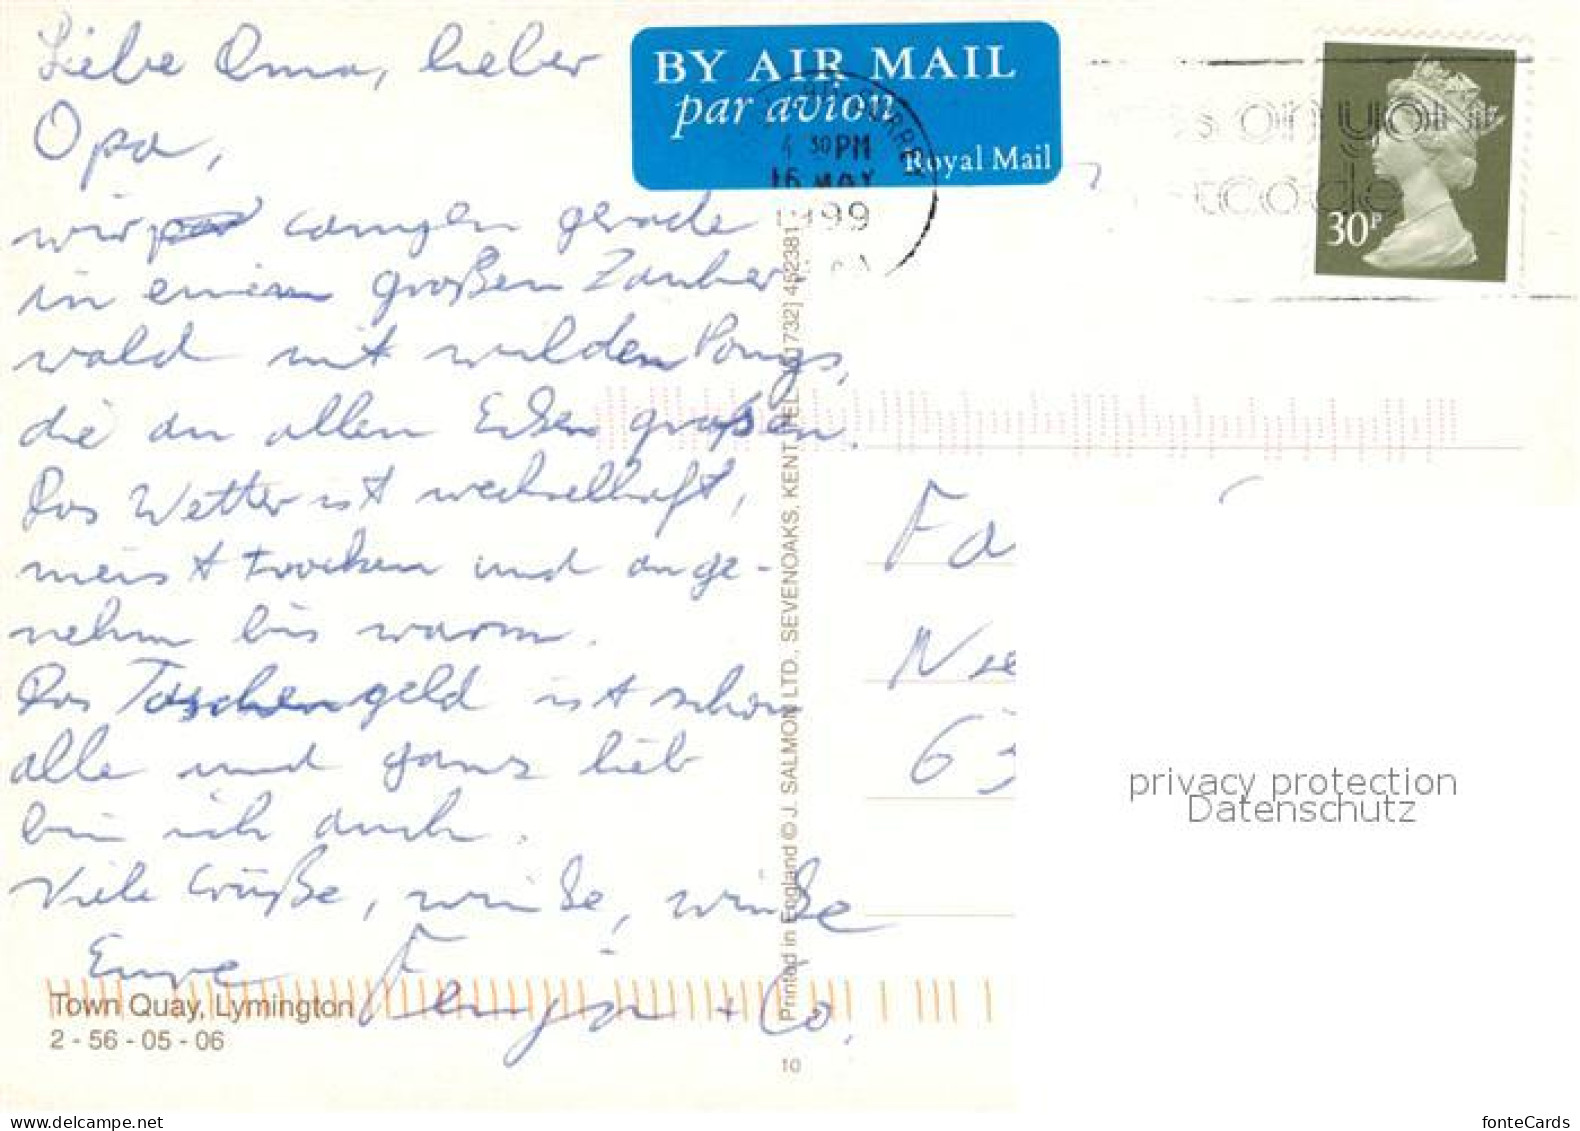 Liebe Oma, lieber
Opa,
wir campen gerade
in einem großen Zauber
wald mit wilden Ponys,
die an allen Ecken grasen.
Das Wetter ist wechselhaft,
meist trocken und ange-
nehm bis warm.
Das Taschengeld ist schon
alle und ganz lieb
bin ich auch.
Viele Grüße, winke, winke
Eure Fenja + Co.
Town Quay, Lymington
2 - 56 - 05 - 06
BY AIR MAIL
par avion
Royal Mail
4 30PM
16 MAY
1999
30P
Printed in England © J. SALMON LTD., SEVENOAKS, KENT, TEL. [01732] 452381
10
Fa
Nie
63
privacy protection
Datenschutz
www.delcampe.net
fonteCards